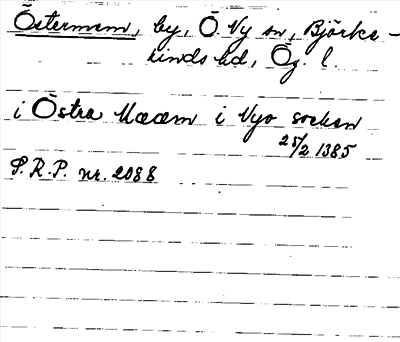 Östermem, by, Ö. Ny sn, Björke-
kinds hd, Ög. l.
i Östra Mææm i Nyo sockan
25/2 1385
S.R.P. nr. 2088